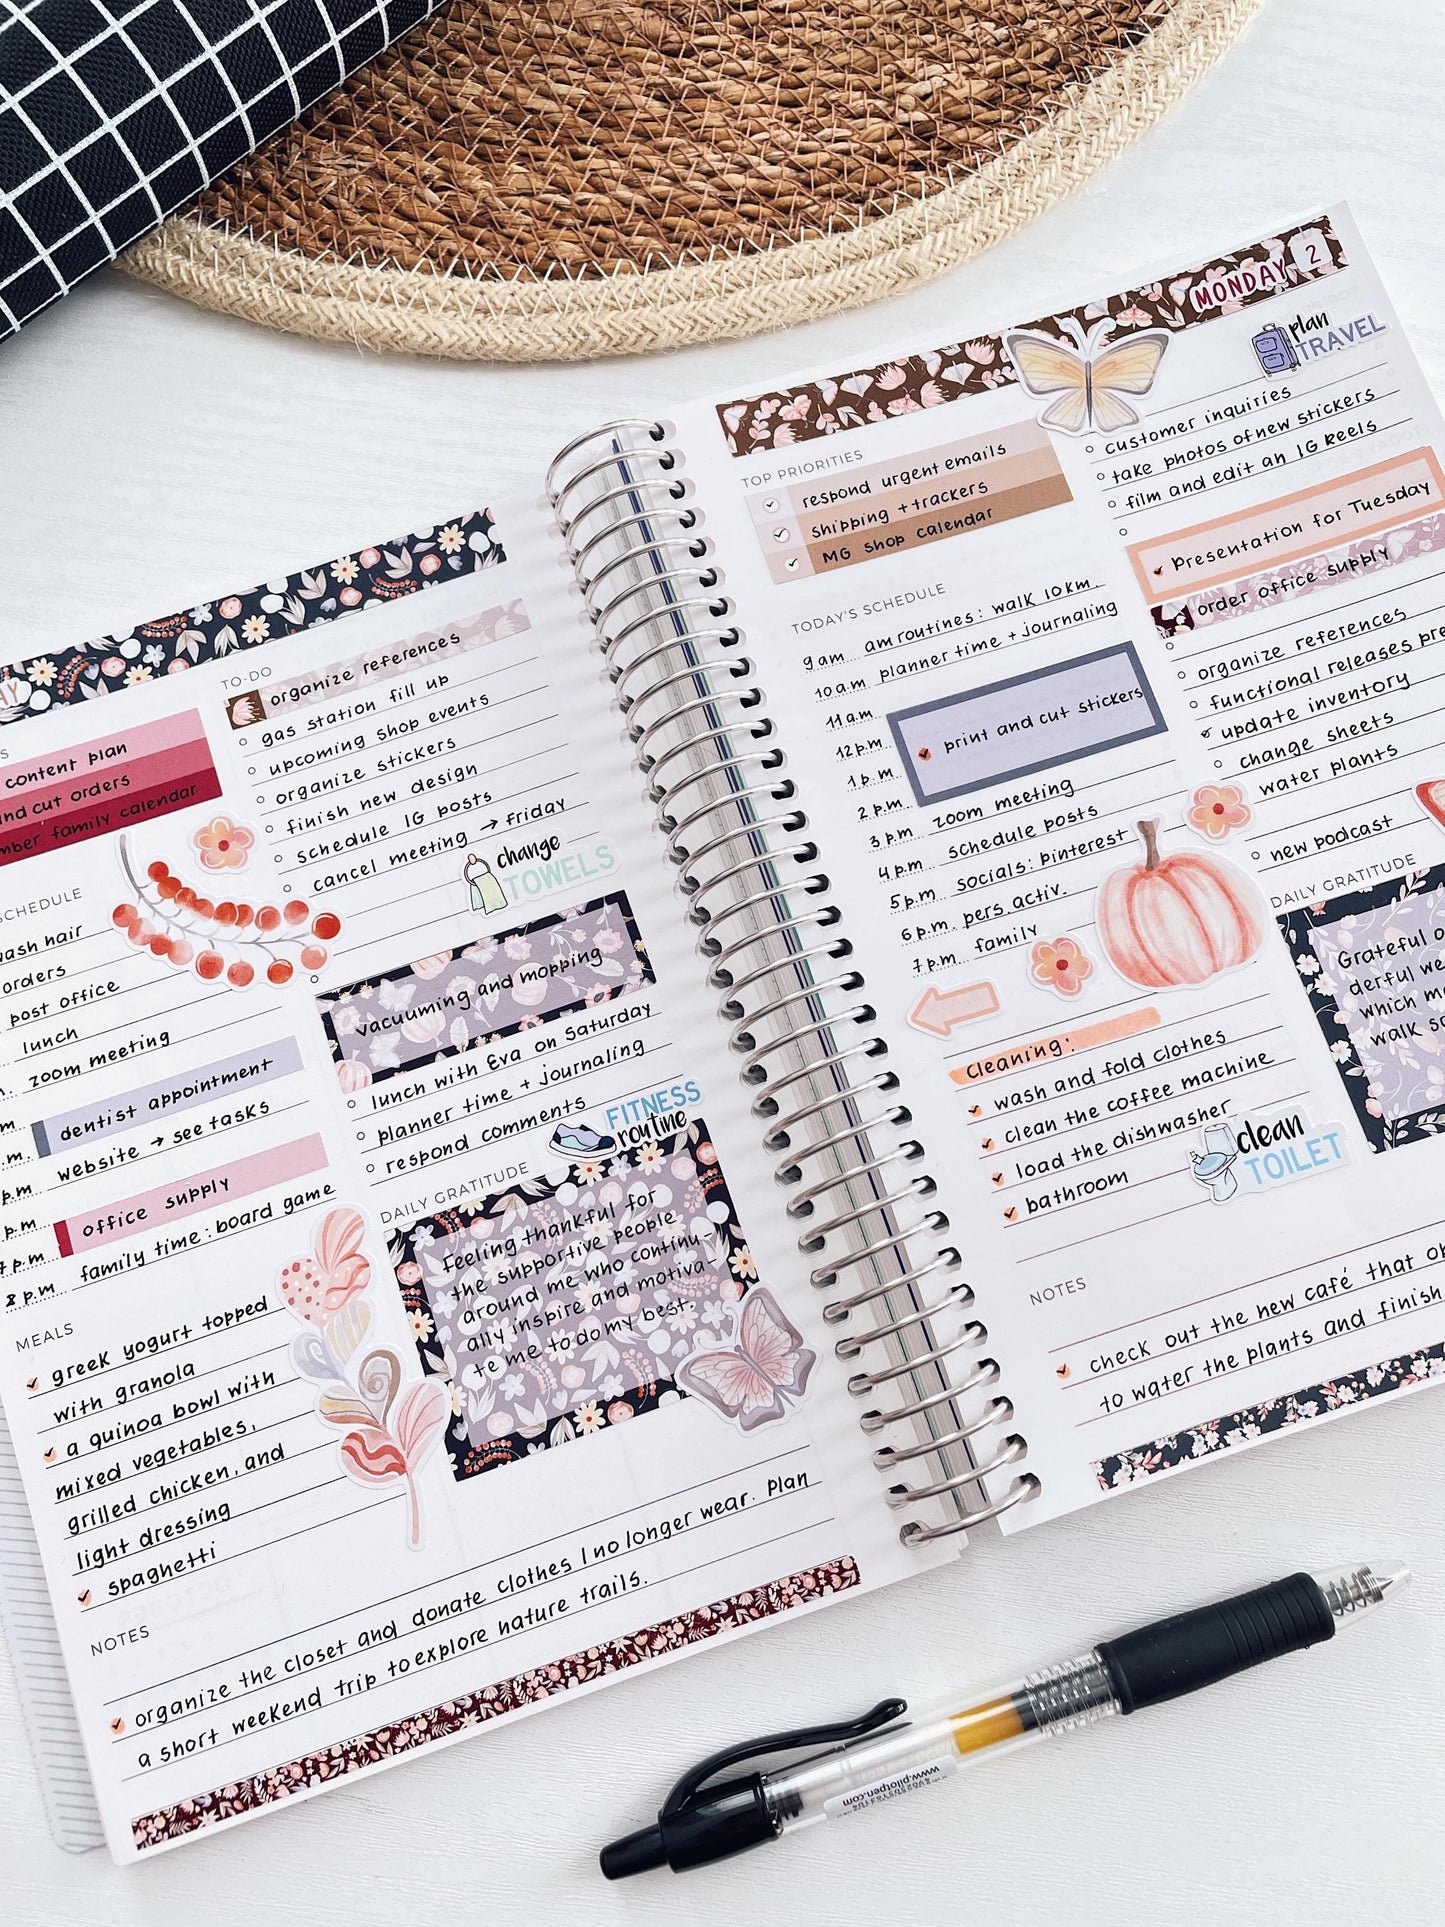 AY
content plan
nd cut orders
mber family calendar
SCHEDULE
ash hair
orders
post office
lunch
zoom meeting
dentist appointment
website → see tasks
office supply
family time: board game
8 p.m.
MEALS
greek yogurt topped
with granola
a quinoa bowl with
mixed vegetables,
grilled chicken, and
light dressing
spaghetti
TO-DO
organize references
gas station fill up
upcoming shop events
organize stickers
finish new design
schedule IG posts
cancel meeting → friday
change
TOWELS
vacuuming and mopping
lunch with Eva on Saturday
planner time + journaling
respond comments
FITNESS
routine
DAILY GRATITUDE
Feeling thankful for
the supportive people
around me who continu-
ally inspire and motiva-
te me to do my best.
NOTES
organize the closet and donate clothes I no longer wear. Plan
a short weekend trip to explore nature trails.
MONDAY 2
TOP PRIORITIES
respond urgent emails
shipping + trackers
MG shop calendar
TODAY'S SCHEDULE
9 am am routines: walk 10km.
10 a.m planner time + journaling
11 a.m
12 p.m print and cut stickers
1 p.m
2 p.m
3 p.m zoom meeting
4 p.m schedule posts
5 p.m socials: pinterest
6 p.m. pers. activ.
7 p.m family
cleaning:
wash and fold clothes
clean the coffee machine
load the dishwasher
bathroom
clean
TOILET
plan
TRAVEL
customer inquiries
take photos of new stickers
film and edit an IG Reels
Presentation for Tuesday
order office supply
organize references
functional releases pre
update inventory
change sheets
water plants
new podcast
DAILY GRATITUDE
Grateful o
derful we
which m
walk s
NOTES
check out the new café that o
to water the plants and finish
www.pilotpen.com